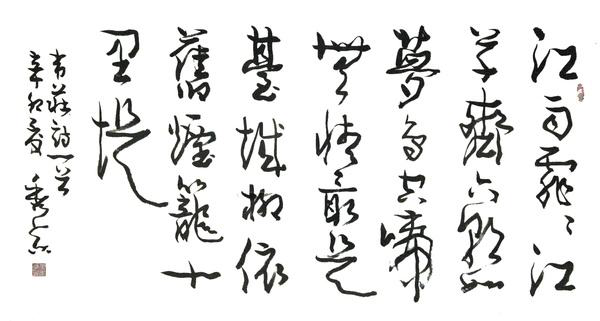 江雨霏〻江
草齊六朝如
夢鳥空啼
無情最是
臺城柳依
舊煙籠十
里堤
韋莊詩一首
辛卯夏